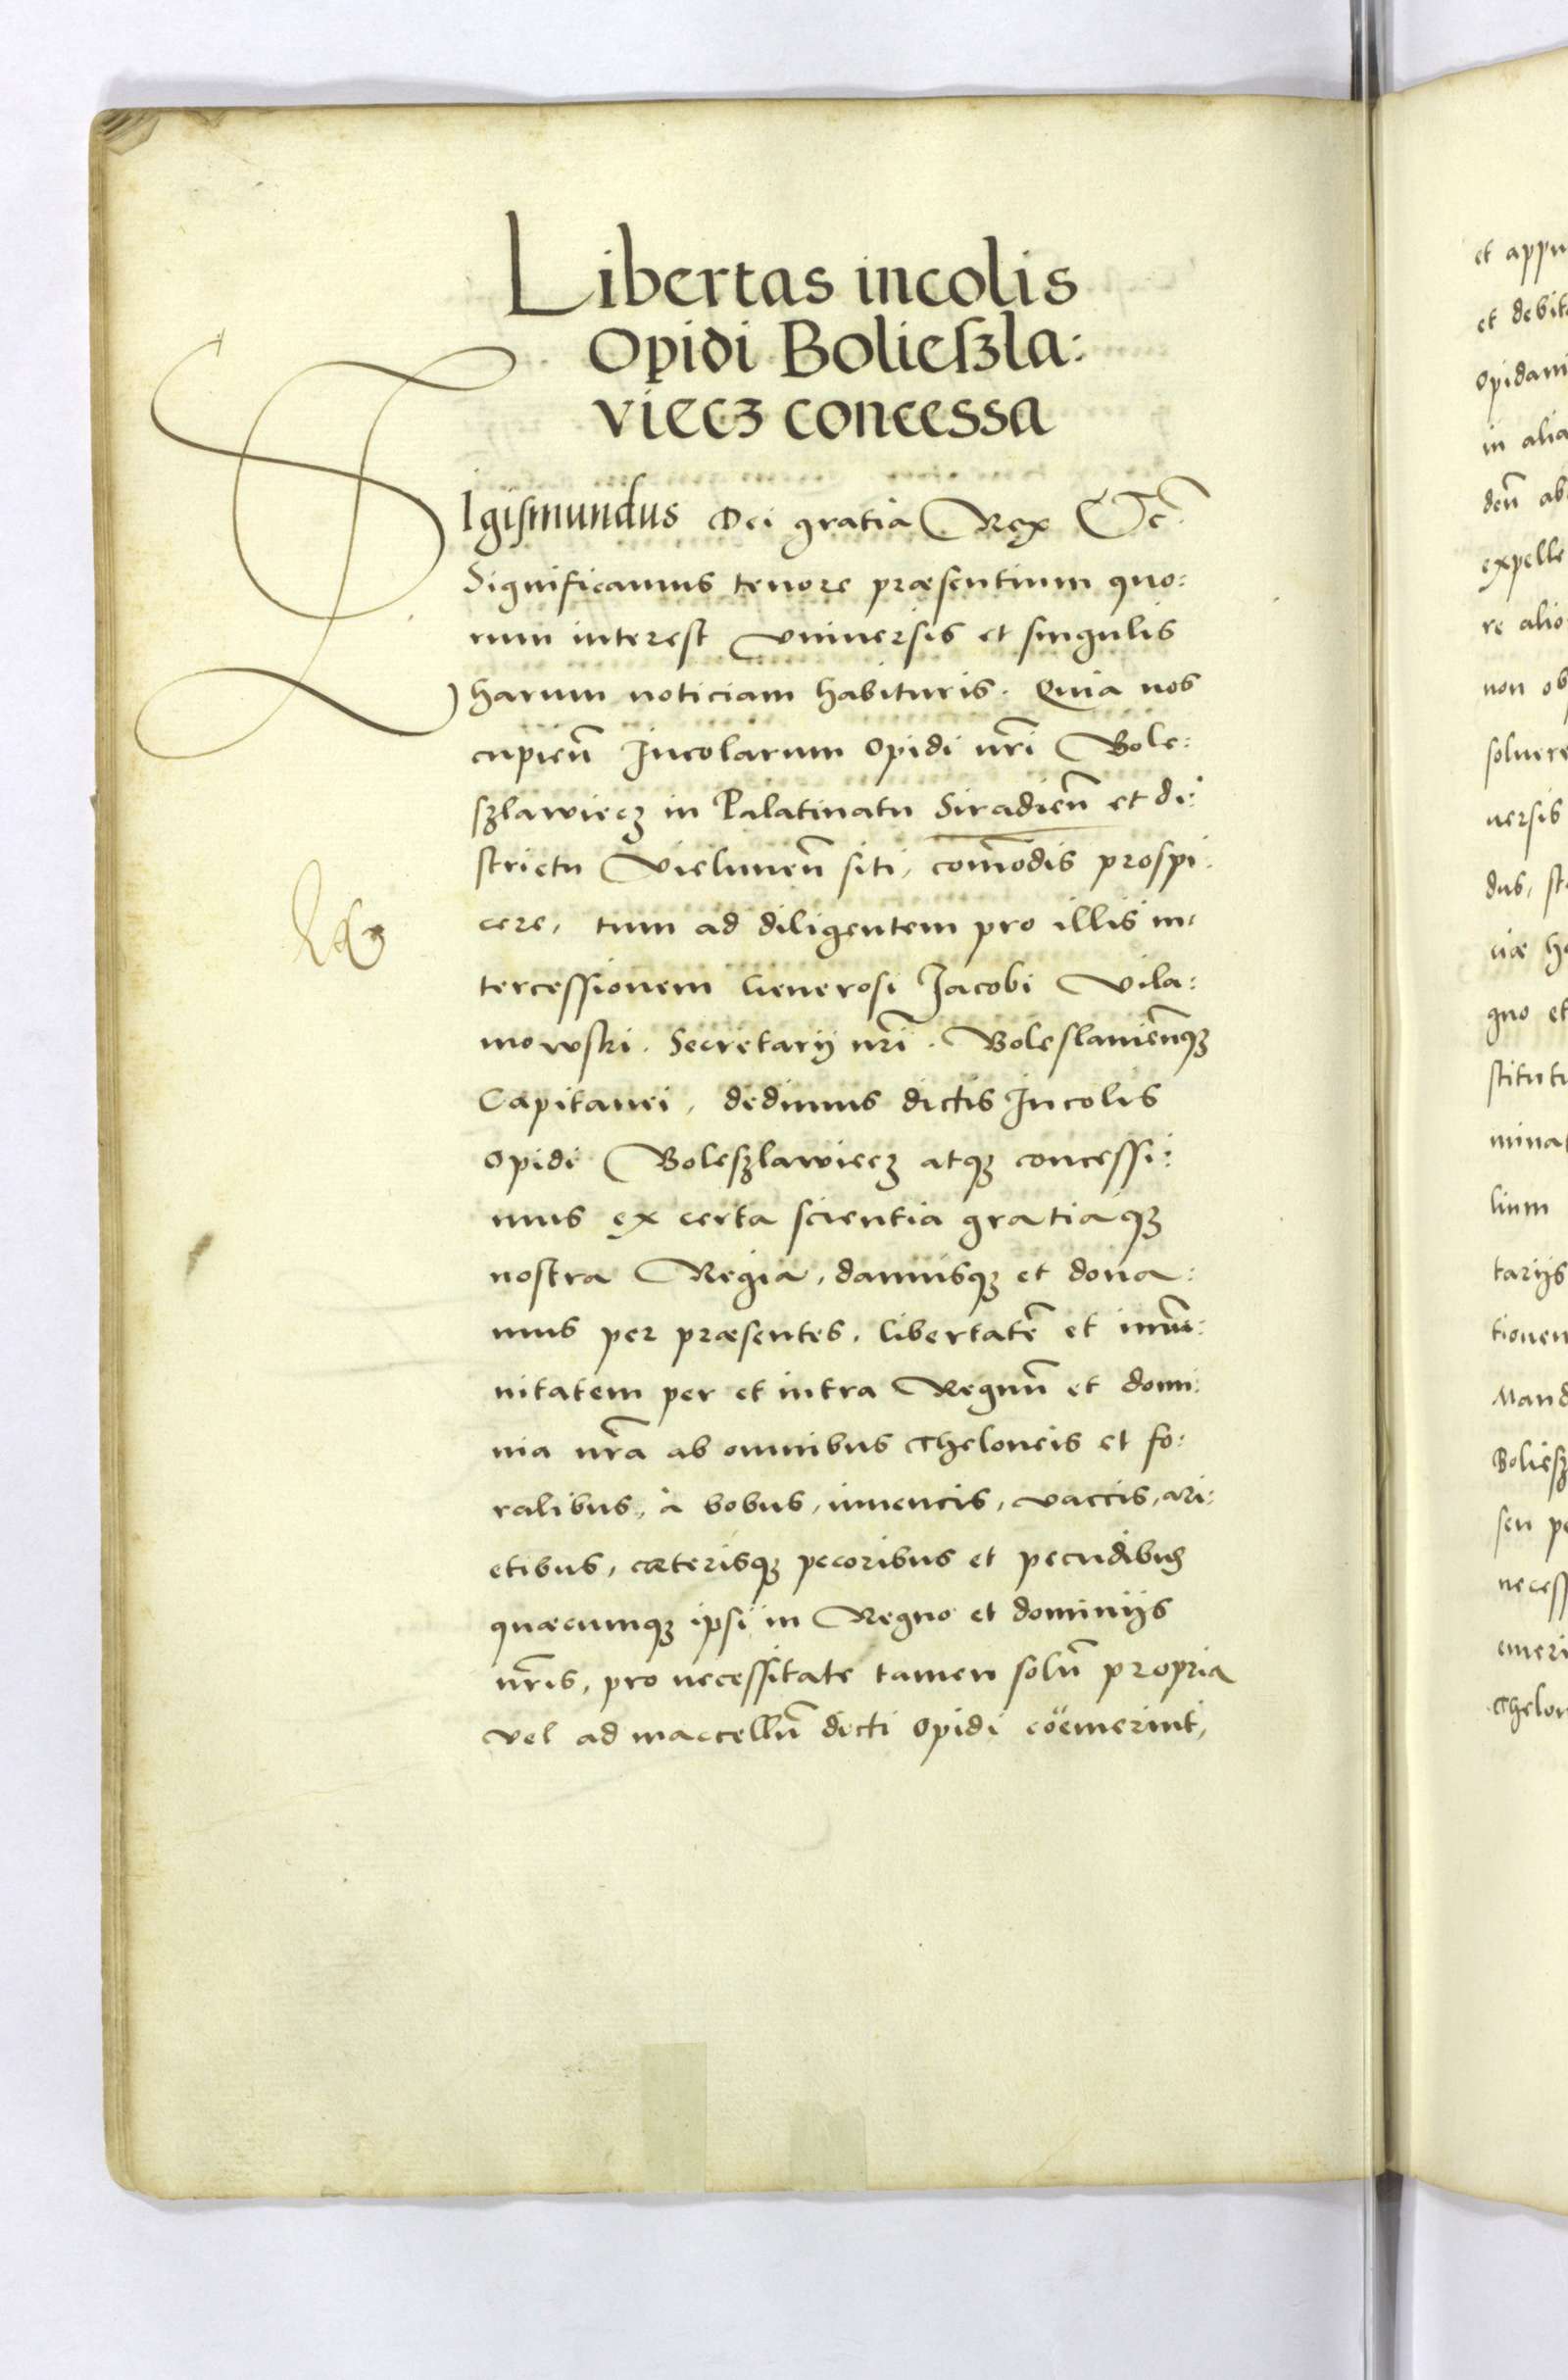 Libertas incolis
Opidi Bolieſzla:
viecz concessa
SIgiſmundus Dei gratia Rex Etc̃.
Significamus tenore præsentium quo:
rum interest Vniuersis et singulis
harum noticiam habituris. Quia nos
cupien̄ Incolarum Opidi nr̃i Bole:
ſzlawiecz in Palatinatu Siradien̄ et di:
strictu Vielunen̄ siti, com̄odis prospi:
cere, tum ad diligentem pro illis in:
tercessionem Generosi Jacobi Vila:
mowski. Secretarij nr̃i. Boleslauien̄qꝫ
Capitanei, dedimus dictis Incolis
Opidi Boleſzlawiecz atqꝫ concessi:
mus ex certa scientia gratiaqꝫ
nostra Regia, damusqꝫ et dona:
mus per præsentes, libertatē et im̄u:
nitatem per et intra Regnū et domi:
nia nr̃a ab omnibus Theloneis et fo:
ralibus, à bobus, iuuencis, vaccis, ari:
etibus, cæterisqꝫ pecoribus et pecudibus
quæcumqꝫ ipsi in Regno et dominijs
nr̃is, pro necessitate tamen solū propria
vel ad maccellū dicti Opidi coëmerint,
et appu
et debit
Opidam
in alia
den̄ ab
expelle
re alio
non ob
soluere
uersis
dus, st
uæ h
gno et
stitut
mina
lium
tarijs
tionem
Mand
Boliesz
seu pe
necess
emeri
Thelon